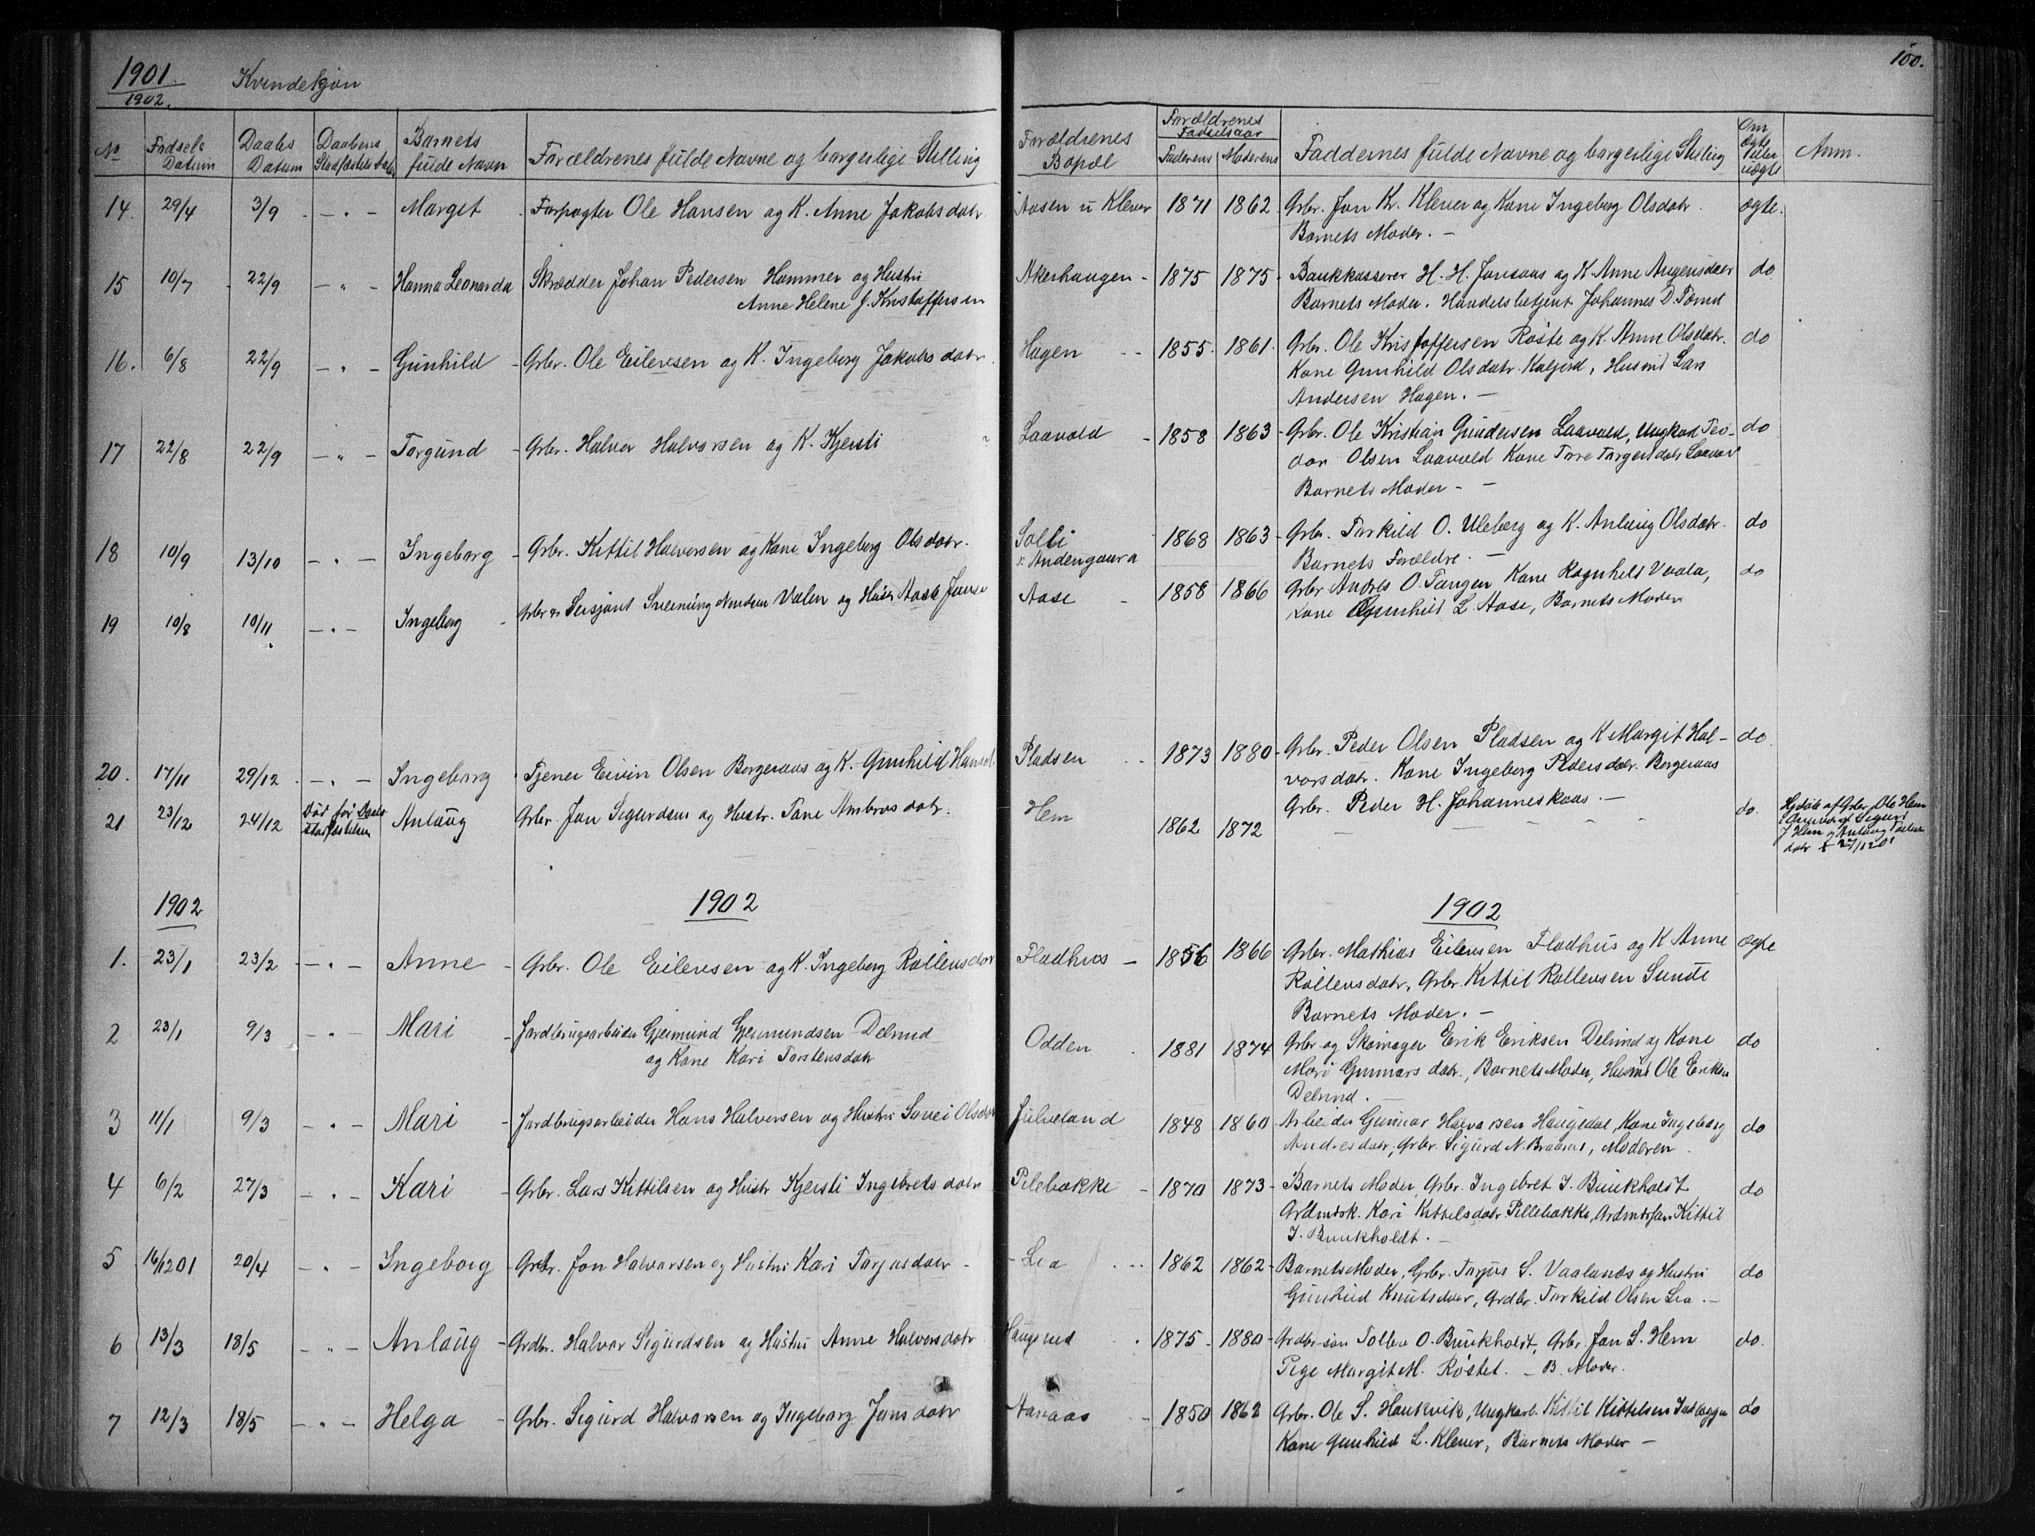 1901.
1902.
Kvindekjøn
100.
No
Fødsels Datum
Daabs Datum
Daabens
Barnets fulde Navn
Forældrenes fulde Navne og borgerlige Stilling
Forældrenes Bopæl
Forældrenes Fødselsaar
Faderens
Moderens
Faddernes fulde Navne og borgerlige Stilling
Om ægte eller uægte
Anm.
14. 29/4 3/9 - " - Marget Forpagter Ole Hansen og K. Anne Jakobsdatr Aasen u Klever 1871 1862 Grbr. Jon Kr. Klever og Kone Ingeborg Olsdatr. ægte.
Barnets Moder. —
15 10/7 22/9 - " - Hanna Leonarda Skrædder Johan Pedersen Hammer og Hustru Akerhaugen - 1875 1875 Bankkasserer H. H. Jonsaas og K. Anne do
Anne Helene J. Kristoffersen Barnets Moder. Handelsbetjent Johannes D.
16. 6/8 22/9 - " - Gunhild Grbr. Ole Eilevsen og K. Ingeborg Jakobsdatr. Hagen 1855. 1861. Grbr. Ole Kristoffersen Røste og K. Anne Olsdatr. do
Kone Gunhild Olsdatr. Husmd Lars
Andersen Hagen. —
17 22/8 22/9 - " - Torgund Grbr. Halvor Halvorsen og K. Kjersti Laavold - 1858 1863 Grbr. Ole Kristian Gundersen Laavold, Ungkarl Teo- do
dor Olsen Laavold Kone Tore Torgersdatr
Barnets Moder - —
18 10/9 13/10 - " - Ingeborg Grbr. Kittil Halvorsen og Kone Ingeborg Olsdatr. Solli 1868 1863 Grbr. Torkild O. Uleberg og K. Anlaug Olsdatr. do
Andengaara Barnets Forældre. —
19 10/8 10/11 - " - Ingeborg Grbr og Sersjant Sveinung Valen og Aase 1858 1866 Grbr Andres O. Tangen Kone Ragnhild Vaala, do
Kone Gunhild L. Aase, Barnets Moder
20. 17/11 29/12 - " - Ingeborg Tjener Eivin Olsen Borgeraas og K. Gunhild Pladsen 1873 1880 Grbr. Peder Olsen Pladsen og K Margit Hal- do.
vorsdatr. Kone Ingeborg Pedersdatr. Borgeraas
21 23/12 24/12 Død før Daabs Anlaug Grbr. Jon Sigurdsen og Hustr. Tone Ambrosdatr. Hem 1862 1872 Grbr. Peder H. Johanneskaas. — do. Hjdøbt af Grbr. Ole Hem
1902 1902 1902
1. 23/1 23/2 - " - Anne Grbr. Ole Eilevsen og K. Ingeborg Rollevsdatr Fladhus 1856 1866 Grbr. Mathias Eilevsen Fladhus og K. Anne ægte
Rollevsdatr, Grbr. Kittil Rollevsen Sunde
Barnets Moder. —
2 23/1 9/3 - " - Mari Jordbrugsarbeider Gjermund Gjermundsen Delsrud Odden 1881 1874 Grbr og Skomager Erik Eriksen og Kone do
og Kone Kari Torstensdatr Mari Gunnarsdatr., Barnets Moder, Husmd Ole
3 11/1 9/3 - " - Mari Jordbrugsarbeider Hans Halvorsen og Hustru Julveland 1848 1860 Arbeider Gunnar Halvorsen Haugedal, Kone Ingeborg do
Andresdatr, Grbr. Sigurd N. Moderen
4 6/2 27/3 - " - Kari Grbr. Lars Kittilsen og Hustr Kjersti Ingebretsdatr Pilebakke 1870 1873 Barnets Moder, Grbr. Ingebret J. Bunkholdt do
Kari Kittelsdatr Pillebakke, Kittil
J. Bunkholdt. —
5 16/1201 20/4 - " - Ingeborg Grbr. Jon Halvorsen og Hustru Kari Torjusdatr - Lia 1862 1862 Barnets Moder, Grbr. Torjus S. Vaalands og Hustru do
Gunhild Knutsdatr, Grdbr. Torkild Olsen Lia. —
6 13/3 18/5 - " - Anlaug Grdbr. Halvor Sigurdsen og Hustru Anne Halvorsdatr Haugerud 1875 1880 Grdbr søn Tollev O. Bunkholdt, Grbr. Jon S. Hem do.
Pige Margit M. Røstet. — B. Moder.
7 12/3 18/5 - " - Helga Grbr. Sigurd Halvorsen og Ingeborg Jonsdatr Aavaas 1850 1862 Grbr. Ole S. Haukvik, Ungkarl Kittil Kittelsen do
Kone Gunhild L. Klever, Barnets Moder —